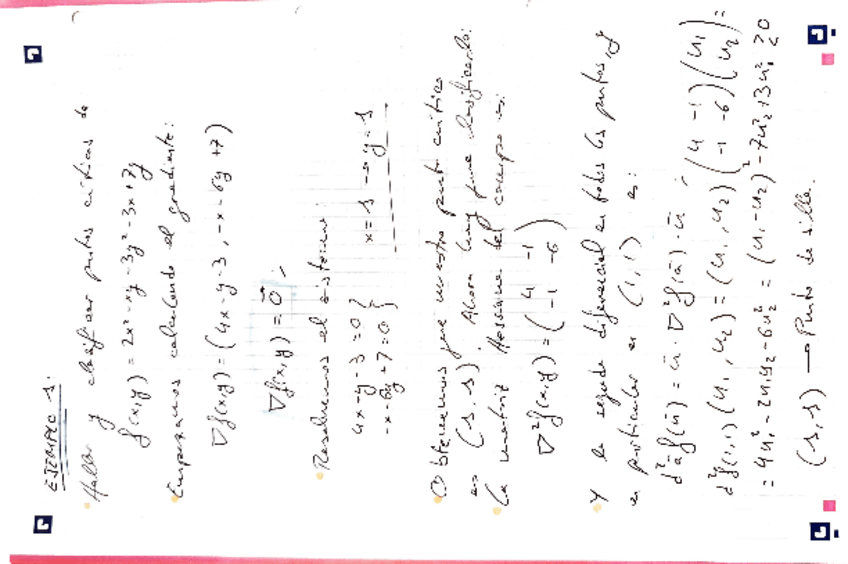 EJEMPLO 1:
Hallar y clasificar puntos críticos de
f(x,y) = 2x² - xy - 3y² - 3x + 7y
Empezamos calculando el gradiente:
∇f(x,y) = (4x - y - 3, -x - 6y + 7)
∇f(x,y) = 0⃗ ;
Resolvemos el sistema:
4x - y - 3 = 0 }
-x - 6y + 7 = 0 } x = 1 → y = 1
Obtenemos que nuestro punto crítico
es (1,1). Ahora hay que clasificarlo:
La matriz Hessiana del campo es:
∇²f(x,y) = ( 4 -1
-1 -6 )
Y la segunda diferencial en todos los puntos, y
en particular en (1,1) es:
d²a f(ū) = ū · ∇²f(ā) · ū ;
d²f(1,1) (u₁, u₂) = (u₁, u₂) ( 4 -1
-1 -6 ) ( u₁
u₂ ) =
= 4u₁² - 2u₁u₂ - 6u₂² = (u₁ - u₂)² - 7u₂² + 3u₁² ≷ 0
(1,1) → Punto de silla.